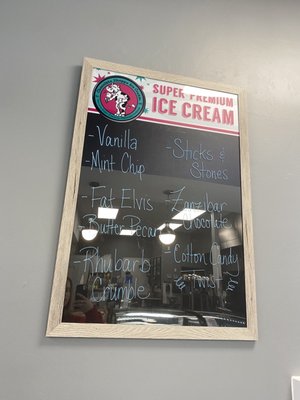 SUPER PREMIUM
ICE CREAM
-Vanilla
-Mint Chip
-Fat Elvis
-Butter Pecan
-Rhubarb
Crumble
-Sticks &
Stones
-Zanzibar
Chocolate
-Cotton Candy
Twist